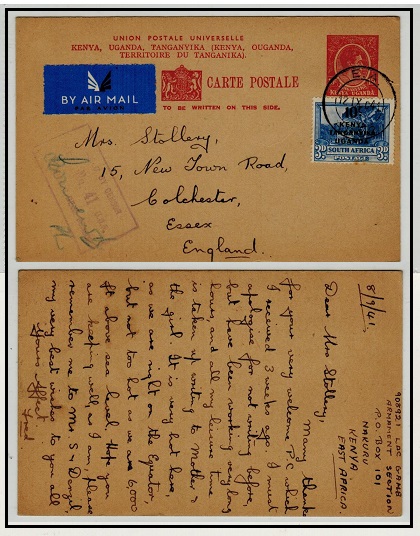 UNION POSTALE UNIVERSELLE
KENYA, UGANDA, TANGANYIKA (KENYA, OUGANDA,
TERRITOIRE DU TANGANIKA).
BY AIR MAIL
PAR AVION
CARTE POSTALE
TO BE WRITTEN ON THIS SIDE.
KENYA UGANDA
10c
KENYA
TANGANYIKA
UGANDA
3D SOUTH AFRICA 3D
POSTAGE
Mrs. Stollery,
15, New Town Road,
Colchester,
Essex
England.
908921 LAC GAMB
ARMAMENT SECTION
P.O BOX 101
NAKURU
KENYA
EAST AFRICA.
8/9/41.
Dear Mrs Stollery,
Many thanks
for your very welcome P.C which
I received 3 weeks ago. I must
apologise for not writing before,
but have been working very long
hours and all my leisure time
is taken up writing to Mother &
the girl. It is very hot here,
as we are right on the Equator,
but not too hot as we are 6,000
ft above sea level. Hope you
are keeping well, as I am, please
remember me to Mr S & Denzil,
my very best wishes to you all
Yours Affect.
Fred